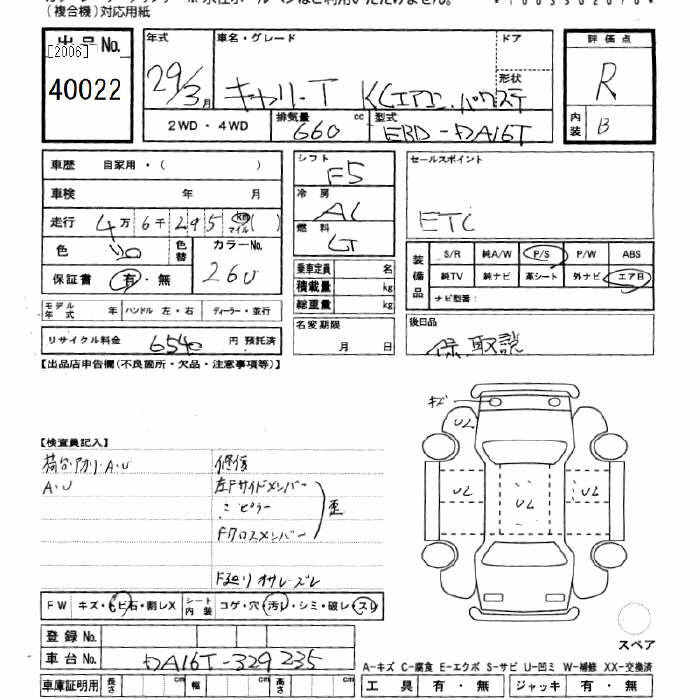 (複合機)対応用紙
出品No.
[2006]
40022
年式 車名・グレード ドア
29/3月 キャリートラ KCエアコン.パワステ 形状
2WD・4WD 排気量 660 cc 型式 EBD-DA16T
評価点
R
内装 B
車歴 自家用・( )
車検 年 月
走行 4万6千295 km マイル ( )
色 シロ 色替 カラーNo. 26U
保証書 有・無
モデル年式 年 ハンドル 左・右 ディーラー・並行
リサイクル料金 6540 円 預託済
シフト F5
冷房 AC
燃料
乗車定員 名
積載量 kg
総重量 kg
名変期限
月 日
セールスポイント
ETC
装備品 S/R 純A/W P/S P/W ABS
純TV 純ナビ 革シート 外ナビ エアB
ナビ型番:
後日品
保.取説
【出品店申告欄(不良箇所・欠品・注意事項等)】
【検査員記入】
荷台・アオリ・A・U 修復
A・U 左Fサイドメンバー
〃 ピラー 歪
Fクロスメンバー
F廻り オサレ・ズレ
キズ
U2
U2 U2 U2
FW キズ・ヒビ石・割レX シート内装 コゲ・穴・汚レ・シミ・破レ・スレ
登録No.
車台No. DA16T-329235
車庫証明用 長さ cm 幅 cm 高さ cm
スペア
A-キズ C-腐食 E-エクボ S-サビ U-凹ミ W-補修 XX-交換済
工具 有・無 ジャッキ 有・無